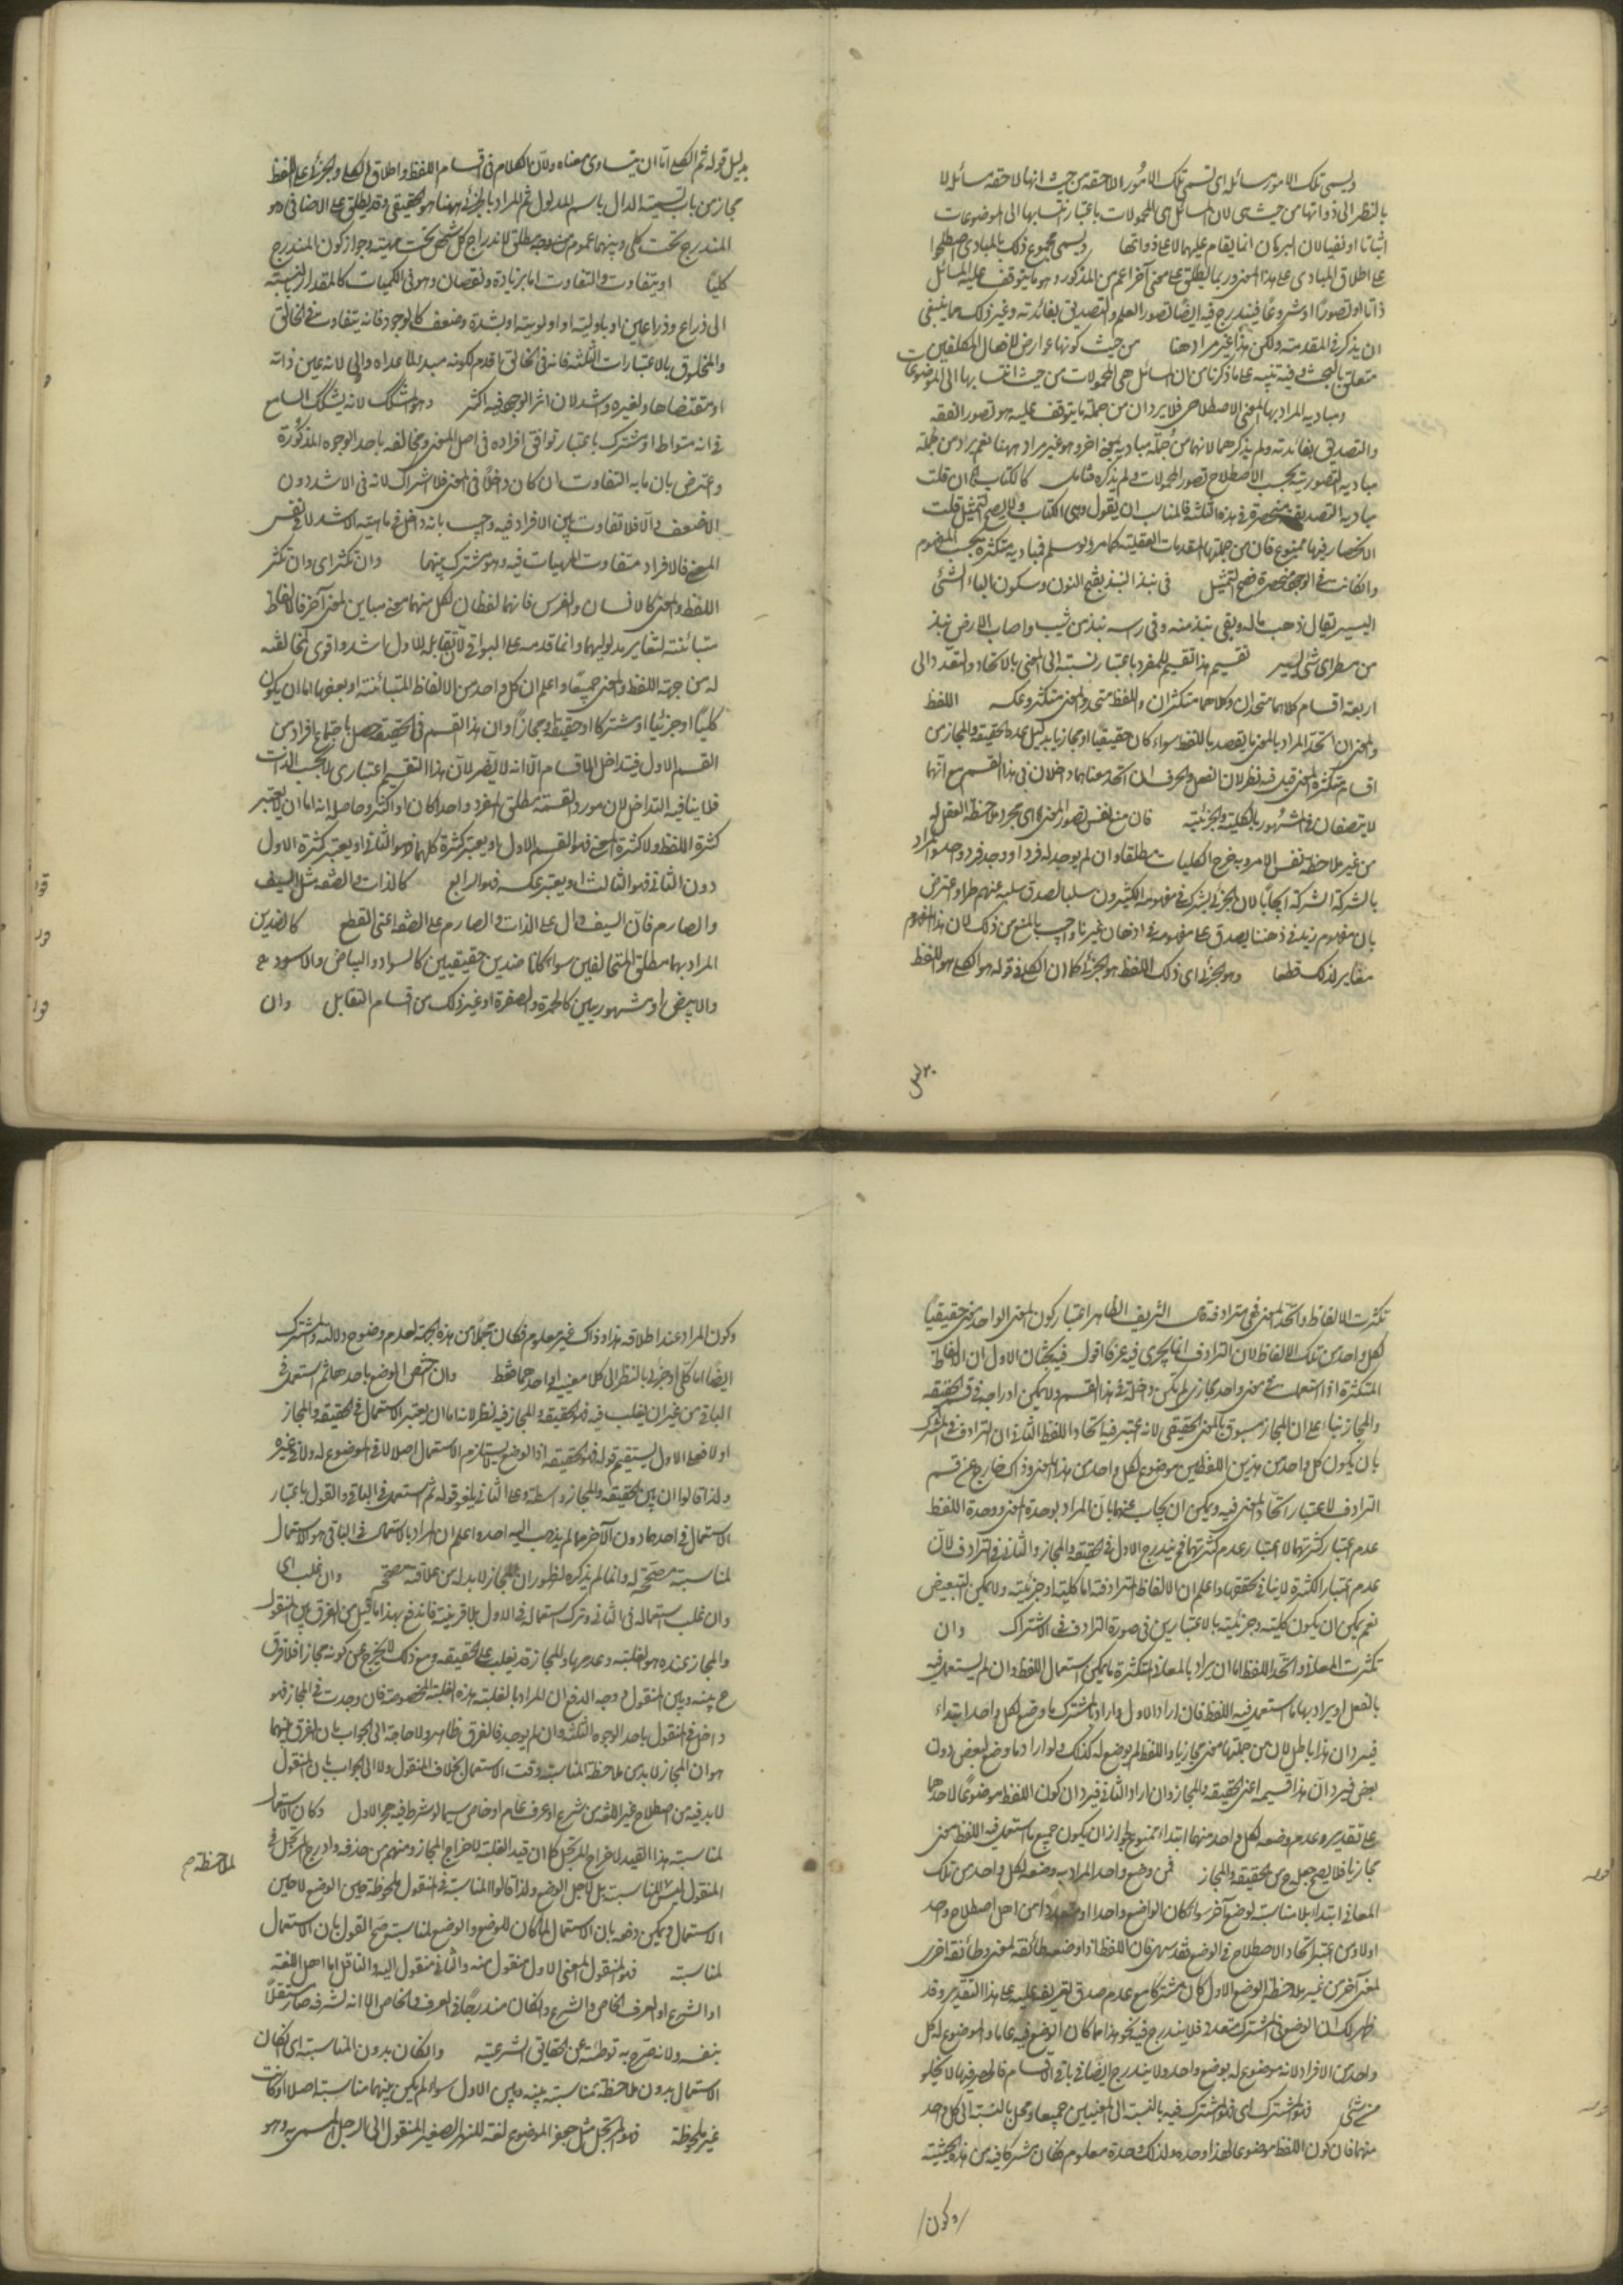 ويسمى تلك الامور مسائله اى تسمى تلك الامور اللاحقة من حيث انها لاحقة مسائل لا
بالنظر الى ذواتها من حيث هى لان المسائل هى المحمولات باعتبار انتسابها الى الموضوعات
اثباتا او نفيا لان البرهان انما يقام عليهما لا على ذواتها ويسمى مجموع ذلك بالمبادى اصطلحوا
على اطلاق المبادى على هذا المعنى وربما يطلق على معنى آخر اعم من المذكور وهو ما يتوقف عليه المسائل
ذاتا او تصورا او شروعا فيندرج فيه ايضا تصور العلم والتصديق بفائدته وغير ذلك مما ينبغى
ان يذكر فى المقدمة ولكن هذا غير مراد هنا من حيث كونها عوارض لافعال المكلفين
متعلق بالبحث وفيه تنبيه على ما ذكرنا من ان المسائل هى المحمولات من حيث انتسابها الى الموضوعات
ومباديه المراد بها المعنى الاصطلاحى فلا يرد ان من جملة ما يتوقف عليه هو تصور الفقه
والتصديق بفائدته ولم يذكرهما لانهما من جملة مباديه بمعنى آخر وهو غير مراد ههنا نعم يرد من جملة
مباديه التصورية بحسب الاصطلاح تصور المحمولات ولم يذكره فتامل كالكتاب فان قلت
مباديه التصديقية منحصرة فى هذه الثلثة فالمناسب ان يقول وهى الكتاب ولا يصح التمثيل قلت
الانحصار فيها ممنوع فان من جملتها المقدمات العقلية كما مر ولو سلم فمباديه متكثرة بحسب المفهوم
وان كانت فى الوجود منحصرة فصح التمثيل فى نبذ النبذ بفتح النون وسكون الباء الشئ
اليسير يقال ذهب ماله وبقى نبذ منه وفى راسه نبذ من شيب واصاب الارض نبذ
من مطر اى شئ يسير تقسيم هذا تقسيم للمفرد باعتبار نسبته الى المعنى بالاتحاد والتعدد الى
اربعة اقسام كلاهما متحدان وكلاهما متكثران واللفظ متحد والمعنى متكثر وعكسه اللفظ
والمعنى ان اتحدا المراد بالمعنى ما يقصد باللفظ سواء كان حقيقيا او مجازيا بدليل عده الحقيقة والمجاز من
اقسام متكثرة المعنى قيل فيه نظر لان الفعل والحرف ان اتحد معناهما داخلان فى هذا القسم مع انهما
لا يتصفان فى المشهور بالكلية والجزئية فان منع نفس تصور المعنى اى مجرد ملاحظة العقل له
من غير ملاحظة نفس الامر وبه خرج الكليات مطلقا وان لم يوجد له فرد او وجد فرد واحد والمراد
بالشركة الشركة ايجابا لان الجزئى يشترك فى مفهومه الكثيرون سلبا لصدق سلبه عنهم طرا واعترض
بان مفهوم زيد فى ذهننا يصدق على مفهومه فى اذهان غيرنا واجيب بالمنع من ذلك لان هذا المفهوم
مغاير لذلك قطعا وهو الجزئى اى ذلك اللفظ هو الجزئى كما ان الكلى فى قوله هو الكلى هو اللفظ
بدليل
بدليل قوله ثم الكلى اما ان يتساوى معناه ولان الكلام فى اقسام اللفظ واطلاق الكلى والجزئى على اللفظ
مجاز من باب تسمية الدال باسم المدلول ثم المراد بالجزئى ههنا هو الحقيقى وقد يطلق على الاضافى وهو
المندرج تحت كلى وبينهما عموم من وجه مطلق لاندراج كل شخص تحت مهيته وجواز كون المندرج
كليا او يتفاوت والتفاوت اما بزيادة ونقصان وهو فى الكميات كالمقدار بالنسبة
الى ذراع وذراعين او باولية او اولوية او بشدة وضعف كالوجود فانه يتفاوت فى الخالق
والمخلوق بالاعتبارات الثلثة فانه فى الخالق اقدم لكونه مبدء لما عداه واولى لانه عين ذاته
او مقتضاها ولغيره واشد لان اثر الوجود فيه اكثر وهو المشكك لانه يشكك السامع
فى انه متواط او مشترك باعتبار توافق افراده فى اصل المعنى وتخالفه باحد الوجوه المذكورة
واعترض بان ما به التفاوت ان كان داخلا فى المعنى فلا اشتراك لانه فى الاشد دون
الاضعف والا فلا تفاوت بين الافراد فيه واجيب بانه داخل فى ماهية الاشد لا فى نفس
المعنى فالافراد متفاوت المهيات فيه وهو مشترك بينهما وان تكثرا اى وان تكثر
اللفظ والمعنى كالانسان والفرس فانهما لفظان لكل منهما معنى مباين لمعنى آخر فالالفاظ
متبائنة لتغاير مدلوليهما وانما قدمه على البواقى لان تقابله للاول اشد واقوى لمخالفته
له من جهة اللفظ والمعنى جميعا واعلم ان كل واحد من الالفاظ المتبائنة او بعضها اما ان يكون
كليا او جزئيا او مشتركا او حقيقة ومجازا وان هذا القسم فى الحقيقة حصل باجتماع افراد من
القسم الاول فيتداخل الاقسام الا انه لا يضر لان هذا التقسيم اعتبارى لا بحسب الذات
فلا ينافيه التداخل لان مورد القسمة مطلق المفرد واحدا كان او اكثر وحاصله انه اما ان لا يعتبر
كثرة اللفظ ولا كثرة المعنى فهو القسم الاول او يعتبر كثرة كليهما فهو الثانى او يعتبر كثرة الاول
دون الثانى فهو الثالث او يعتبر عكسه فهو الرابع كالذات والصفة مثل السيف
والصارم فان السيف دال على الذات والصارم على الصفة اعنى القطع كالضدين
المراد بهما مطلق المتخالفين سواء كانا ضدين حقيقيين كالسواد والبياض والاسود
والابيض او مشهوريين كالحمرة والصفرة او غير ذلك من اقسام التقابل وان
تكثرت الالفاظ واتحد المعنى فهى مترادفة الشريف الظاهر اعتبار كون المعنى الواحد معنى حقيقيا
لكل واحد من تلك الالفاظ لان الترادف انما يجرى فيه عرفا اقول فيه بحثان الاول ان الالفاظ
المتكثرة اذا استعملت فى معنى واحد مجازى لم تكن داخلة فى هذا القسم ولا يمكن ادراجه فى قسم الحقيقة
والمجاز بناء على ان المجاز مسبوق بالمعنى الحقيقى لانه اعتبر فيه اتحاد اللفظ الثانى ان الترادف فى المشترك
بان يكون كل واحد من هذين اللفظين موضوع لكل واحد من هذا المعنى وذاك خارج عن قسم
الترادف لاعتبار اتحاد المعنى فيه ويمكن ان يجاب عنهما بان المراد بوحدة المعنى ووحدة اللفظ
عدم اعتبار كثرتهما لا اعتبار عدم كثرتهما فح يندرج الاول فى الحقيقة والمجاز والثانى فى الترادف لان
عدم اعتبار الكثرة لا ينافى تحققها واعلم ان الالفاظ المترادفة اما كلية او جزئية ولا يمكن التبعيض
نعم يمكن ان يكون كلية وجزئية بالاعتبارين فى صورة الترادف فى الاشتراك وان
تكثرت المعانى واتحد اللفظ اما ان يراد بالمعانى المتكثرة ما يمكن استعمال اللفظ وان لم يستعمل فيه
بالفعل او يراد بها ما استعمل فيه اللفظ فان اراد الاول واراد بالمشترك ما وضع لكل واحد ابتداء
فيرد ان هذا باطل لان من جملتها معنى مجازيا واللفظ لم يوضع له كذلك ولو اراد ما وضع لبعض دون
بعض فيرد ان هذا قسيمه اعنى الحقيقة والمجاز وان اراد الثانى فيرد ان كون اللفظ موضوعا لاحدهما
على تقدير عدم وضعه لكل واحد منهما ابتداء ممنوع لجواز ان يكون جميع ما استعمل فيه اللفظ معنى
مجازيا فلا يصح جعله ح من الحقيقة والمجاز فمن وضع واحد المراد به وضعه لكل واحد من تلك
المعانى ابتداء بلا مناسبة لوضع آخر سواء كان الواضع واحدا او متعددا من اهل اصطلاح واحد
اولا ومن اعتبر اتحاد الاصطلاح فى الوضع فقد سهى فان اللفظ اذا وضعه طائفة لمعنى وطائفة اخرى
لمعنى آخر من غير ملاحظة الوضع الاول كان مشتركا مع عدم صدق تعريفه عليه على هذا التقدير وقد
ظهر لك ان الوضع فى المشترك متعدد فلا يندرج فيه نحو هذا مما كان الوضع فيه عاما والموضوع له كل
واحد من الافراد لانه موضوع له بوضع واحد ولا يندرج ايضا فى باقى الاقسام فالحصر فيها لا يخلو
من شئ فهو المشترك اى فهو المشترك فيه بالنسبة الى المعنيين جميعا ومجمل بالنسبة الى كل واحد
منهما فان كون اللفظ موضوعا لهذا وحده ولذاك وحده معلوم فكان مشتركا فيه من هذه الحيثية
/وكون/
وكون المراد عند اطلاقه هذا وذاك غير معلوم فكان مجملا من هذه الجهة لعدم وضوح دلالته والمشترك
ايضا اما كلى او جزئى بالنظر الى كلا معنييه او احدهما فقط وان اختص الوضع باحدهما ثم استعمل فى
الباقى من غير ان يغلب فيه فهو الحقيقة والمجاز فيه نظر لانه اما ان يعتبر الاستعمال فى الحقيقة والمجاز
اولا فعلى الاول لا يستقيم قوله فهو الحقيقة اذ الوضع لا يستلزم الاستعمال اصلا لا فى الموضوع له ولا فى غيره
ولذا قالوا ان بين الحقيقة والمجاز واسطة وعلى الثانى يلغو قوله ثم استعمل فى الباقى والقول باعتبار
الاستعمال فى احدهما دون الآخر مما لم يذهب اليه احد واعلم ان المراد بالاستعمال فى الباقى هو الاستعمال
لمناسبة مصححة له وانما لم يذكره لظهور ان المجاز لا بد له من علاقة مصححة وان غلب اى
وان غلب استعماله فى الثانى وترك استعماله فى الاول بلا قرينة فاندفع بهذا ما قيل من الفرق بين المنقول
والمجاز عنده هو الغلبة وعدمها والمجاز قد يغلب على الحقيقة ومع ذلك لا يخرج عن كونه مجازا فلا فرق
ح بينه وبين المنقول ووجه الدفع ان المراد بالغلبة هذه الغلبة المخصوصة فان وجدت فى المجاز فهو
داخل فى المنقول باحد الوجوه الثلثة وان لم يوجد فالفرق ظاهر ولا حاجة الى الجواب بان الفرق بينهما
هو ان المجاز لا بد من ملاحظة المناسبة وقت الاستعمال بخلاف المنقول ولا الى الجواب بان المنقول
لا بد فيه من اصطلاح غير اللغة من شرع او عرف عام او خاص سيما لو شرط فيه هجر الاول وكان الاستعمال
لمناسبة هذا القيد لاخراج المرتجل كما ان قيد الغلبة لاخراج المجاز ومنهم من حذفه وادرج المرتجل فى
لملاحظة م
المنقول ليس للمناسبة بل لاجل الوضع ولذا قالوا المناسبة فى المنقول ملحوظة حين الوضع لا حين
الاستعمال ويمكن دفعه بان الاستعمال لما كان للوضع والوضع لمناسبة صح القول بان الاستعمال
لمناسبة فهو المنقول المعنى الاول منقول منه والثانى منقول اليه والناقل اما اهل اللغة
او الشرع او العرف الخاص والشرع وان كان مندرجا فى العرف الخاص الا انه لشرفه صار مستقلا
بنفسه ولانه صرح به توطئة عن الحقايق الشرعية وان كان بدون المناسبة اى ان كان
الاستعمال بدون ملاحظة مناسبة بينه وبين الاول سواء لم يكن بينهما مناسبة اصلا او كانت
غير ملحوظة فهو المرتجل مثل جعفر الموضوع لغة للنهر الصغير المنقول الى الرجل المسمى به وهو